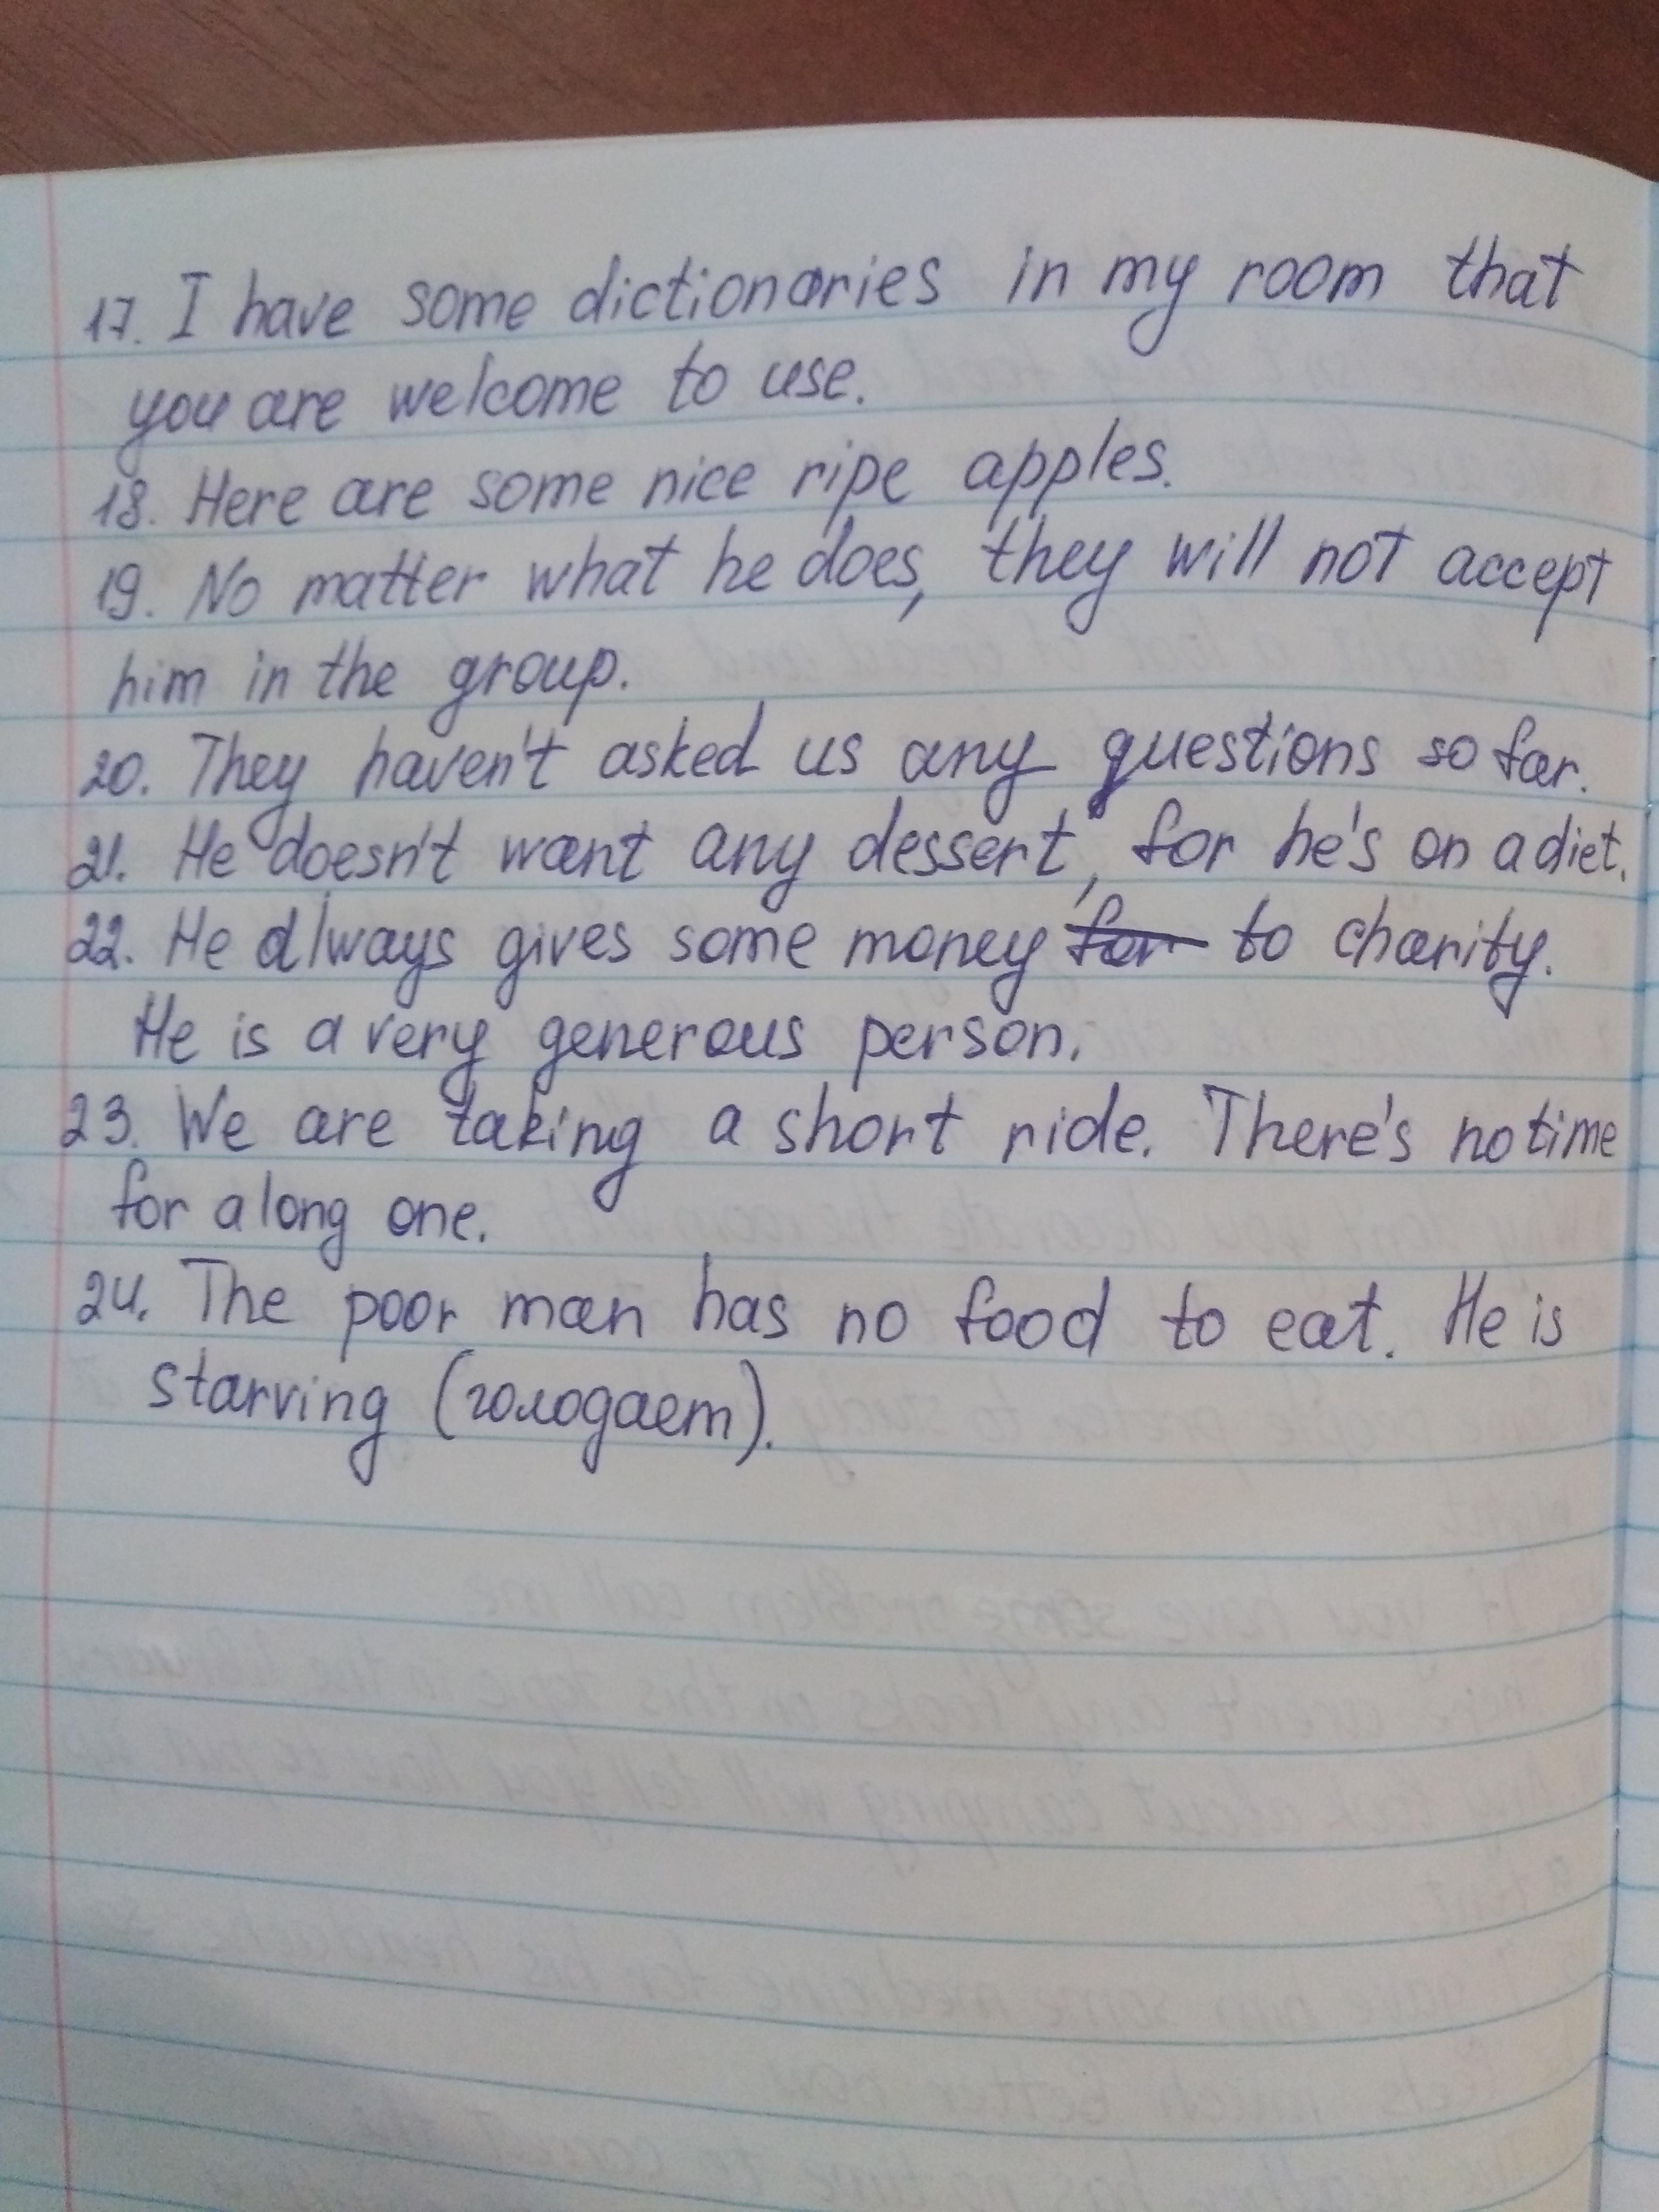 17. I have some dictionaries in my room that
you are welcome to use.
18. Here are some nice ripe apples.
19. No matter what he does, they will not accept
him in the group.
20. They haven't asked us any questions so far.
21. He doesn't want any dessert, for he's on a diet.
22. He always gives some money for to charity.
He is a very generous person.
23. We are taking a short ride. There's no time
for a long one.
24. The poor man has no food to eat. He is
starving (голодает).